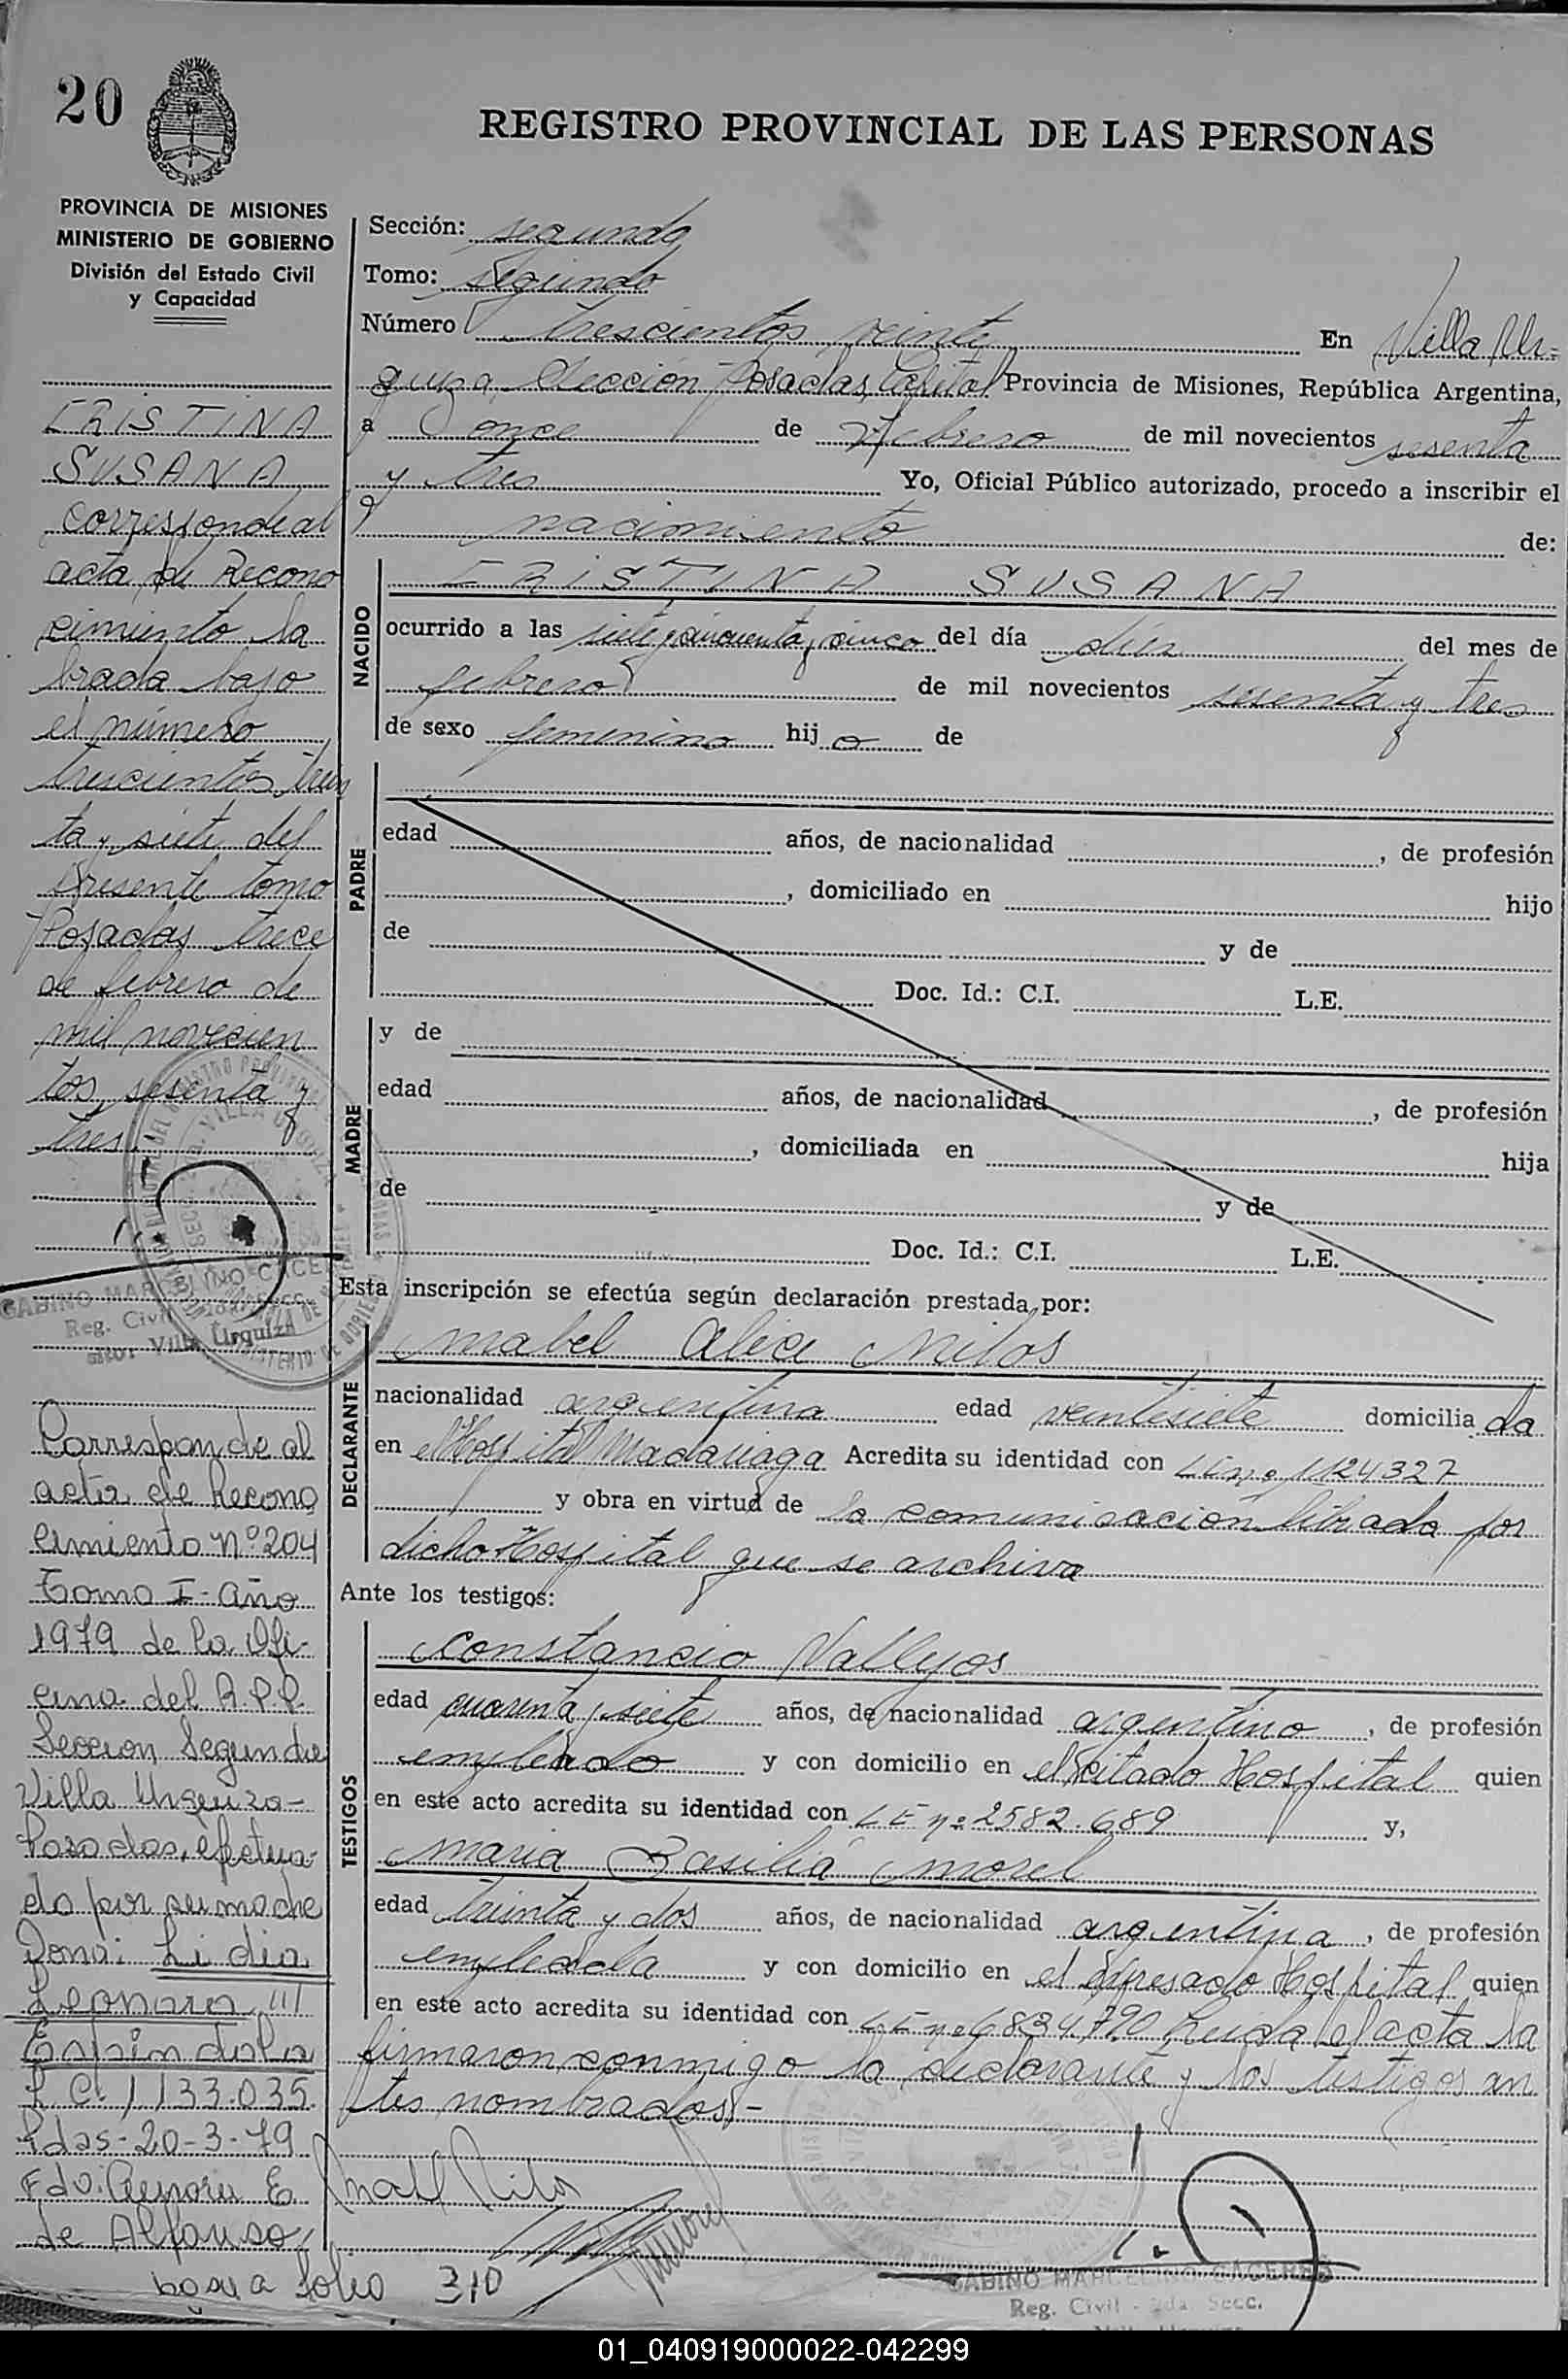 20
REGISTRO PROVINCIAL DE LAS PERSONAS
PROVINCIA DE MISIONES
MINISTERIO DE GOBIERNO
División del Estado Civil
y Capacidad
CRISTINA
SUSANA
corresponde al
acta de Recono
cimiento la
brada bajo
el número
trescientos trein
ta y siete del
presente tomo
Posadas trece
de febrero de
mil novecien
tos sesenta y
tres
GABINO MARCELINO CACERES
Reg. Civil
Villa Urquiza
Corresponde al
acta de Recono
cimiento nº 204
Tomo I - Año
1979 de la Ofi-
cina del R.P.P.
Sección Segunda
Villa Urquiza -
Posadas, efectua-
do por su madre
Dona: Lidia
Leonora
Espindola
L.C. 1133.035.
Pdas - 20-3-79
Fdo: E.
de Alfonso
pasa a folio 310
Sección: segunda
Tomo: segundo
Número trescientos veinte En Villa Ur=
quiza, Sección Posadas, Capital Provincia de Misiones, República Argentina,
a once de Febrero de mil novecientos sesenta
y tres Yo, Oficial Público autorizado, procedo a inscribir el
nacimiento de:
NACIDO
CRISTINA SUSANA
ocurrido a las siete y cincuenta y cinco del día diez del mes de
febrero de mil novecientos sesenta y tres
de sexo femenino hij a de
PADRE
edad años, de nacionalidad , de profesión
, domiciliado en hijo
de y de
Doc. Id.: C.I. L.E.
MADRE
y de
edad años, de nacionalidad , de profesión
, domiciliada en hija
de y de
Doc. Id.: C.I. L.E.
Esta inscripción se efectúa según declaración prestada por:
DECLARANTE
Mabel Alice Milos
nacionalidad argentina edad veintisiete domicilia da
en el Hospital Madariaga Acredita su identidad con LC nº 1124327
y obra en virtud de la comunicación librada por
dicho Hospital que se archiva
Ante los testigos:
TESTIGOS
Constancio Vallejos
edad cuarenta y siete años, de nacionalidad argentino, de profesión
empleado y con domicilio en el citado Hospital quien
en este acto acredita su identidad con LE nº 2582.689 y,
Maria Basilia Morel
edad treinta y dos años, de nacionalidad argentina, de profesión
empleada y con domicilio en el expresado Hospital quien
en este acto acredita su identidad con LC nº 6834.790 Leida el acta la
firmaron conmigo la declarante y los testigos an
tes nombrados -
Mabel Milos
GABINO MARCELINO CACERES
Reg. Civil - 2da Secc.
01_040919000022-042299